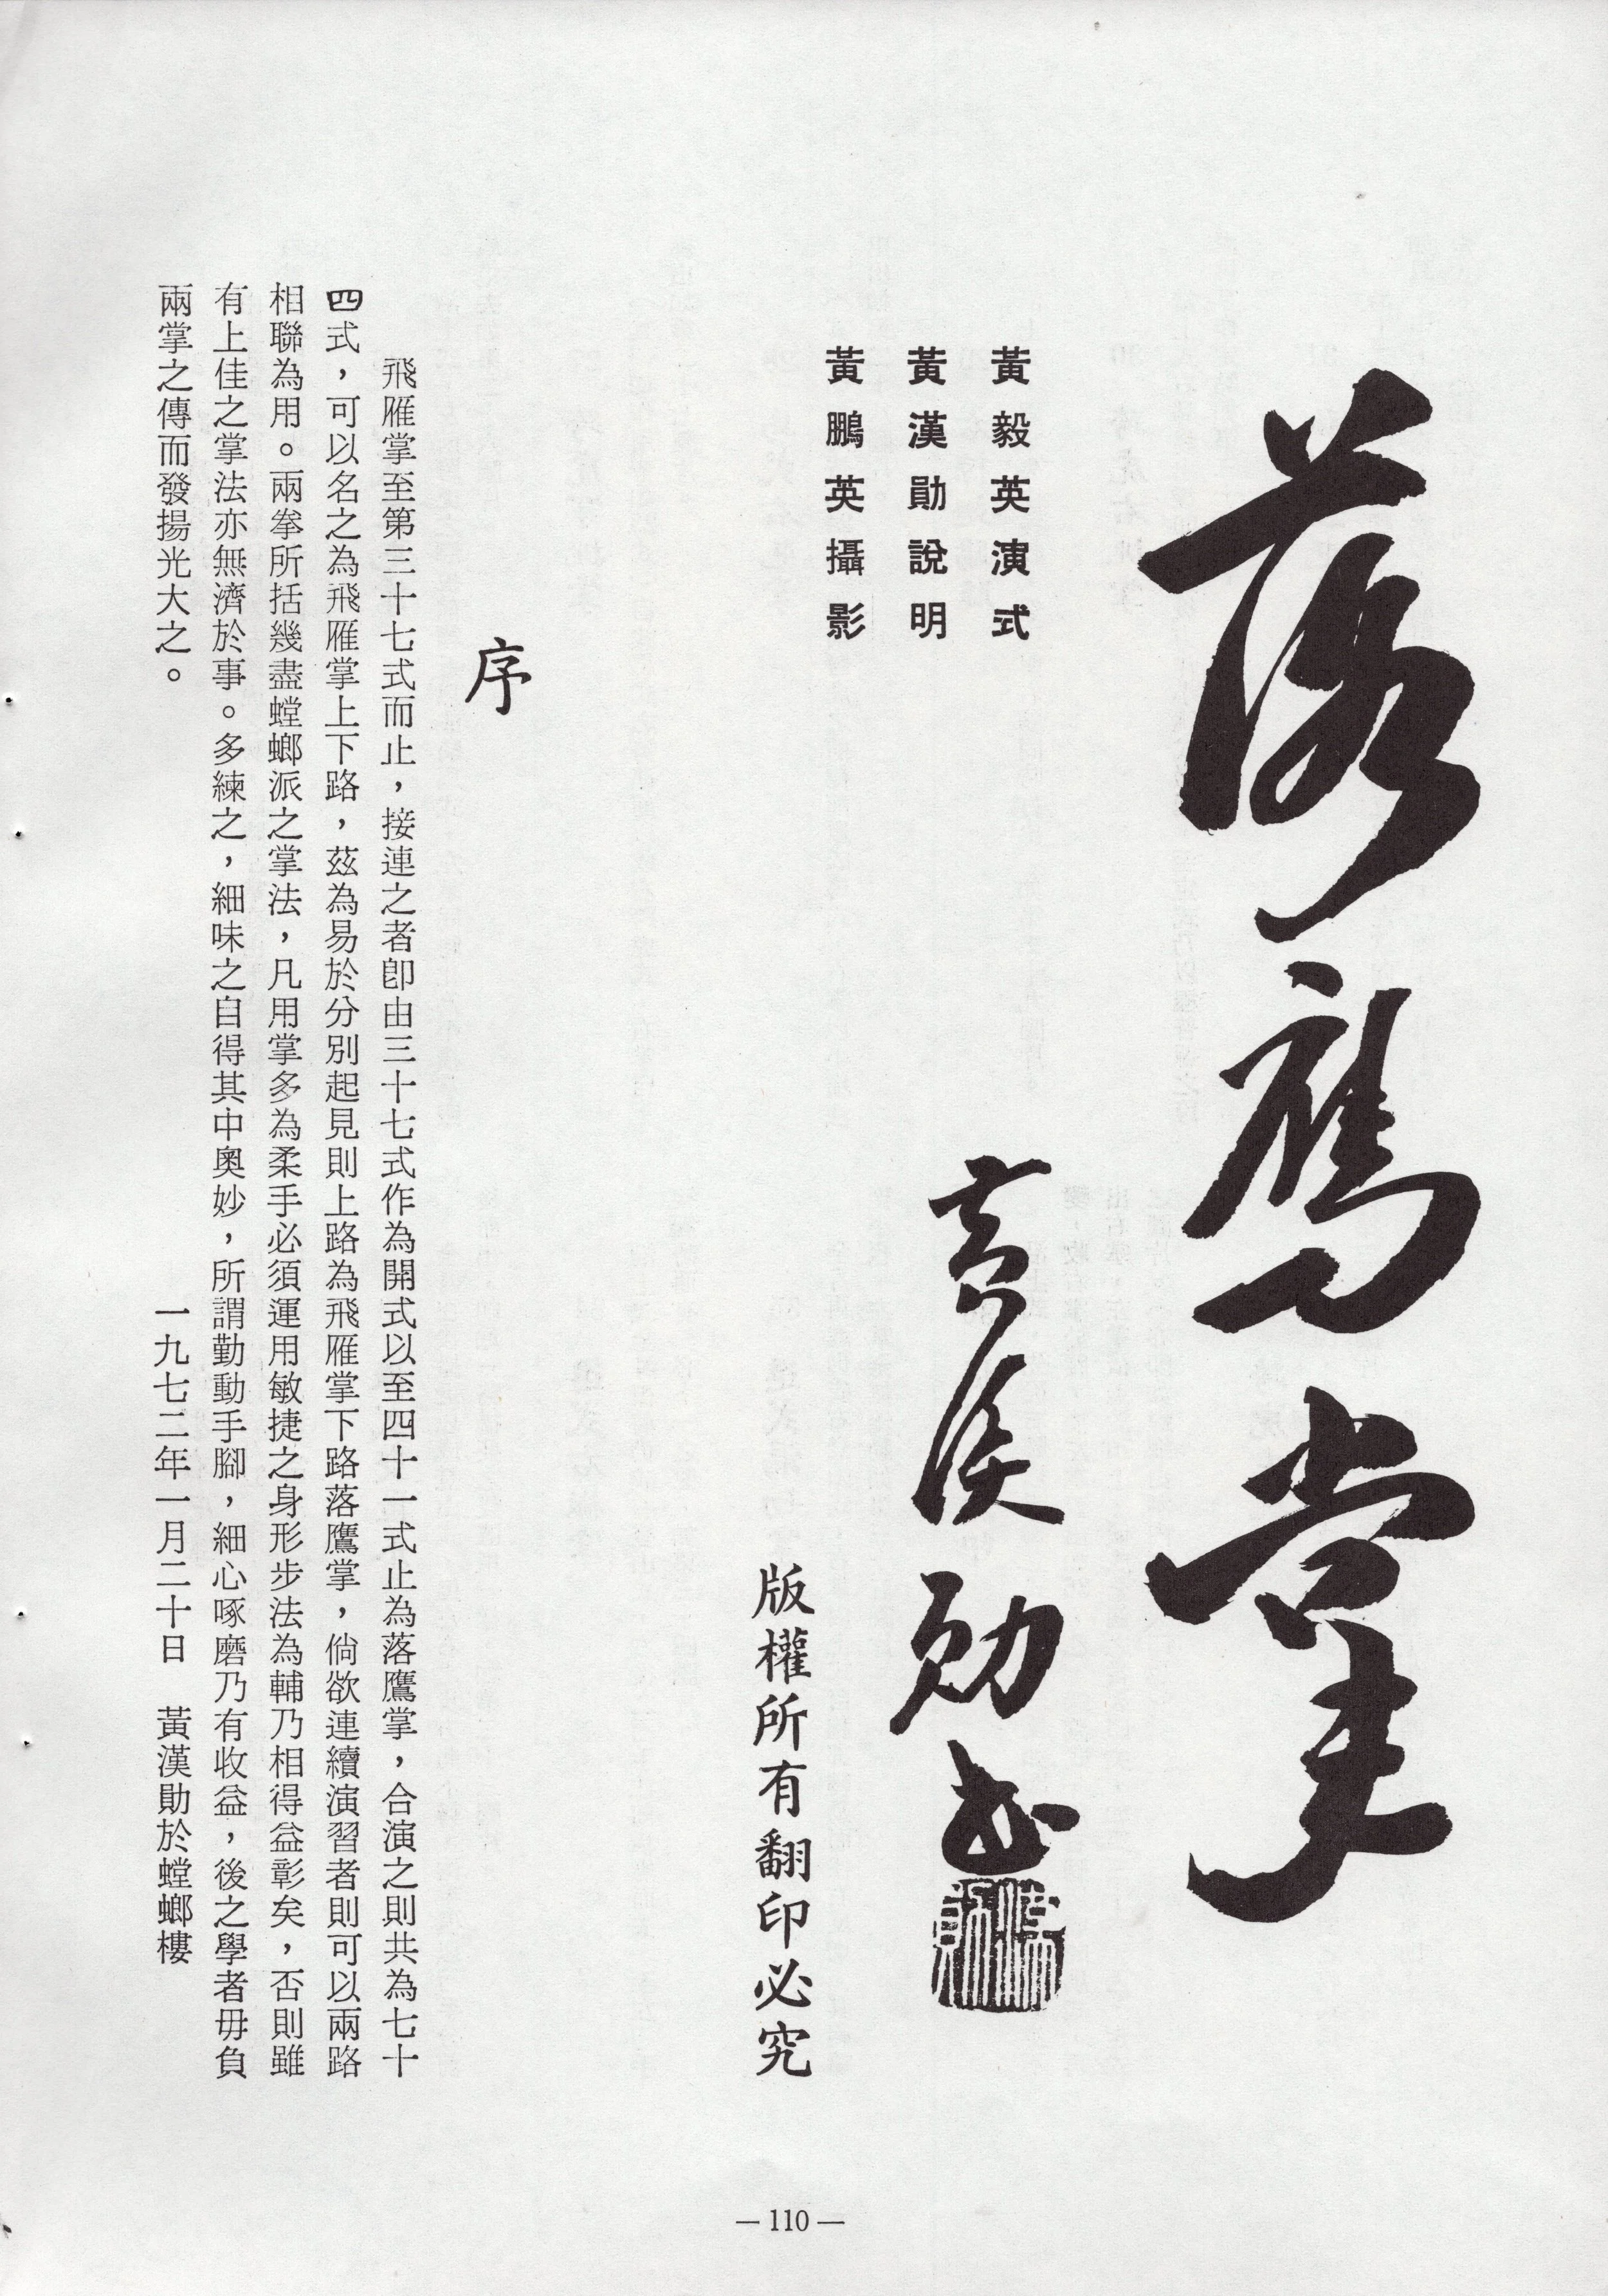 落鷹掌
黃漢勛書
漢勛
黃毅英演式
黃漢勛說明
黃鵬英攝影
版權所有翻印必究
序
飛雁掌至第三十七式而止，接連之者卽由三十七式作為開式以至四十一式止為落鷹掌，合演之則共為七十
四式，可以名之為飛雁掌上下路，茲為易於分別起見則上路為飛雁掌下路落鷹掌，倘欲連續演習者則可以兩路
相聯為用。兩拳所括幾盡螳螂派之掌法，凡用掌多為柔手必須運用敏捷之身形步法為輔乃相得益彰矣，否則雖
有上佳之掌法亦無濟於事。多練之，細味之自得其中奧妙，所謂勤動手腳，細心啄磨乃有收益，後之學者毋負
兩掌之傳而發揚光大之。
一九七二年一月二十日　黃漢勛於螳螂樓
— 110 —